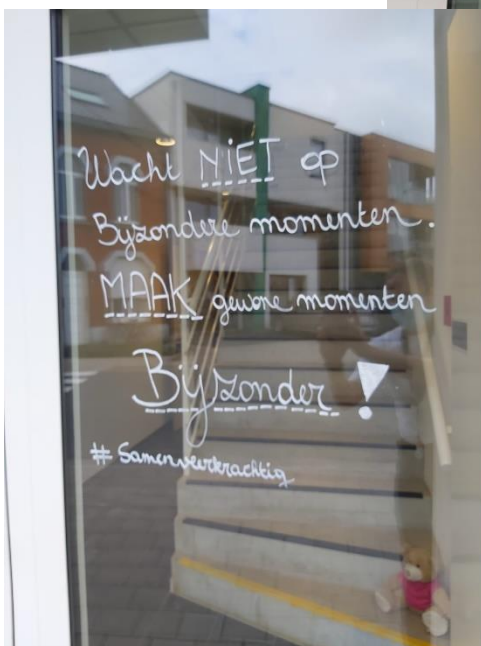 Wacht NiET op
Bijzondere momenten.
MAAK gewone momenten
Bijzonder!
#Samenveerkrachtig